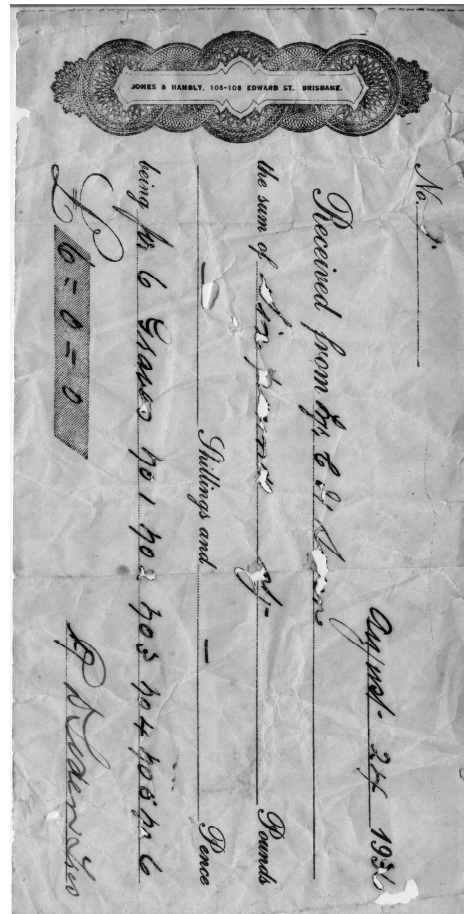 JONES & HAMBLY, 106-108 EDWARD ST. BRISBANE.
No. 1.
August 24 1936
Received from
the sum of Six pounds Pounds
– Shillings and – Pence
being for 6 Graves no 1 no 2 no 3 no 4 no 5 no 6
£ 6 = 0 = 0